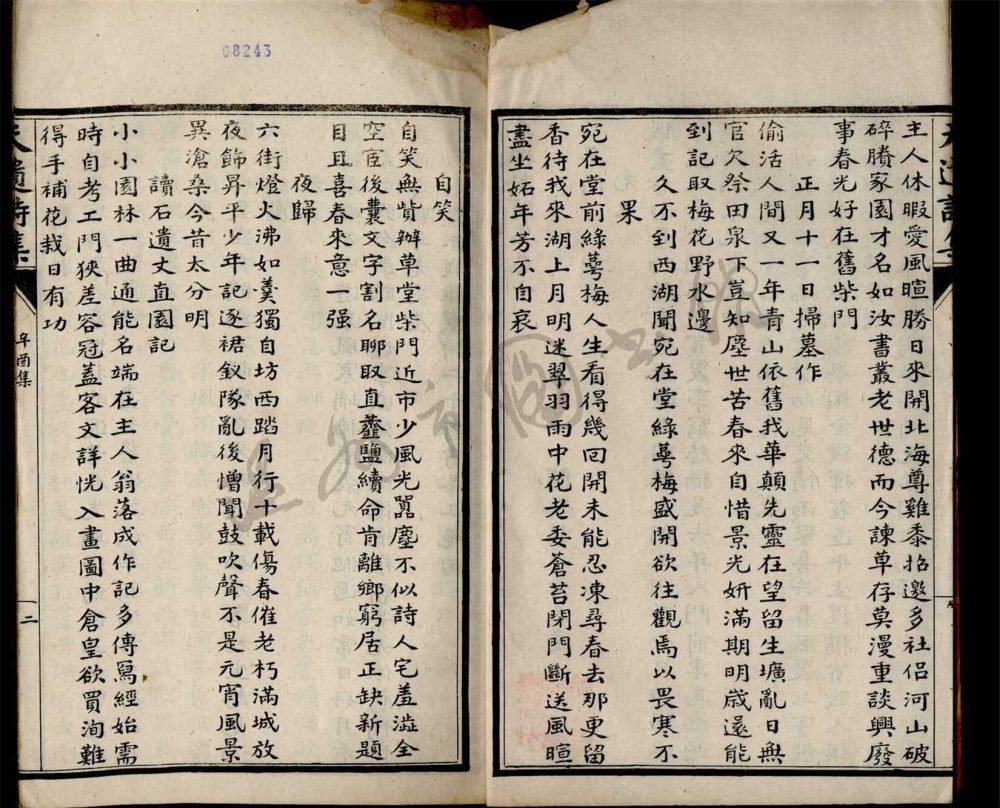 08243
主人休暇愛風暄勝日來開北海尊雞黍招邀多社侶河山破
碎賸家園才名如汝書叢老世德而今諫草存莫漫重談興廢
事春光好在舊柴門
正月十一日掃墓作
偷活人間又一年青山依舊我華顛先靈在望留生壙亂日無
官欠祭田泉下豈知塵世苦春來自惜景光妍滿期明歲還能
到記取梅花野水邊
久不到西湖聞宛在堂綠萼梅盛開欲往觀焉以畏寒不
果
宛在堂前綠萼梅人生看得幾回開未能忍凍尋春去那更留
香待我來湖上月明迷翠羽雨中花老委蒼苔閉門斷送風暄
盡坐妬年芳不自哀
自笑
自笑無貲辦草堂柴門近市少風光囂塵不似詩人宅羞澁全
空宦後囊文字割名聊取直虀鹽續命肯離鄉窮居正缺新題
目且喜春來意一强
夜歸
六街燈火沸如羹獨自坊西踏月行十載傷春催老朽滿城放
夜飾昇平少年記逐裙釵隊亂後憎聞鼓吹聲不是元宵風景
異滄桑今昔太分明
讀石遺丈直園記
小小園林一曲通能名端在主人翁落成作記多傳寫經始需
時自考工門狹差容冠蓋客文詳恍入畫圖中倉皇欲買洵難
得手補花栽日有功
辛酉集
二